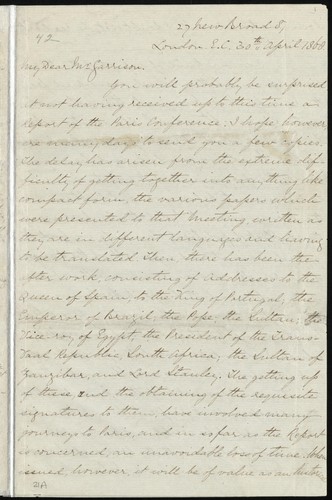 27 New Broad St,
42
London E.C. 30th April 1868
My Dear Mr Garrison.
You will probably be surprised
at not having received up to this time a
Report of the Paris Conference; I hope however
are many days to send you a few copies.
The delay has arisen from the extreme dif-
ficulty of getting together into anything like
compact form, the various papers which
were presented to that Meeting, written as
they are in different languages and having
to be translated. Then there has been the
after work, consisting of addresses to the
Queen of Spain, to the King of Portugal, the
Emperor of Brazil, the Pope, the Sultan; the
Viceroy of Egypt, the President of the Trans-
Vaal Republic, South Africa; the Sultan of
Zanzibar, and Lord Stanley. The getting up
of these and the obtaining of the requisite
signatures to them, have involved many
journeys to Paris, and in so far as the Report
is concerned, an unavoidable loss of time. When
issued, however, it will be of value as an
21A